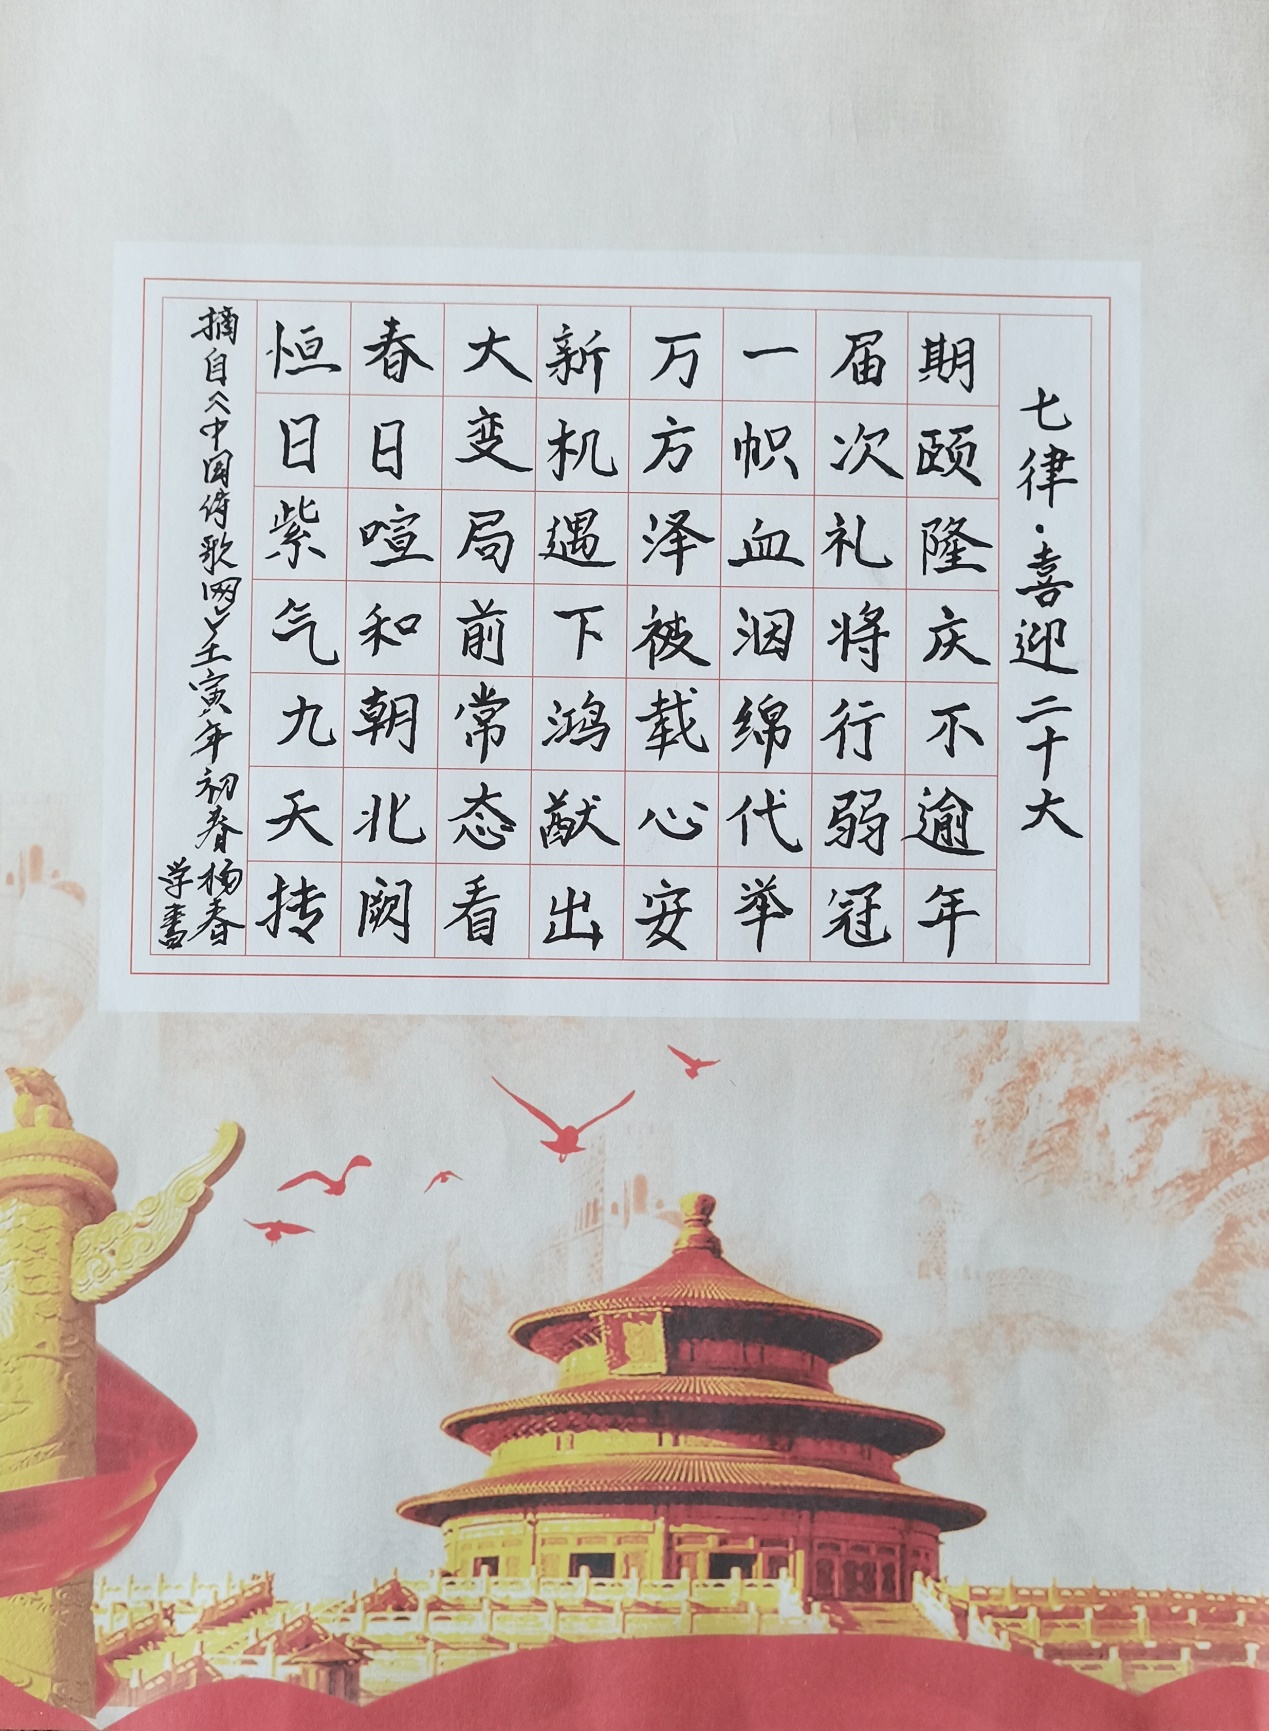 七律·喜迎二十大
期颐隆庆不逾年
届次礼将行弱冠
一帜血洇绵代举
万方泽被载心安
新机遇下鸿猷出
大变局前常态看
春日喧和朝北阙
恒日紫气九天抟
摘自《中国诗歌网》壬寅年初春杨春
学书